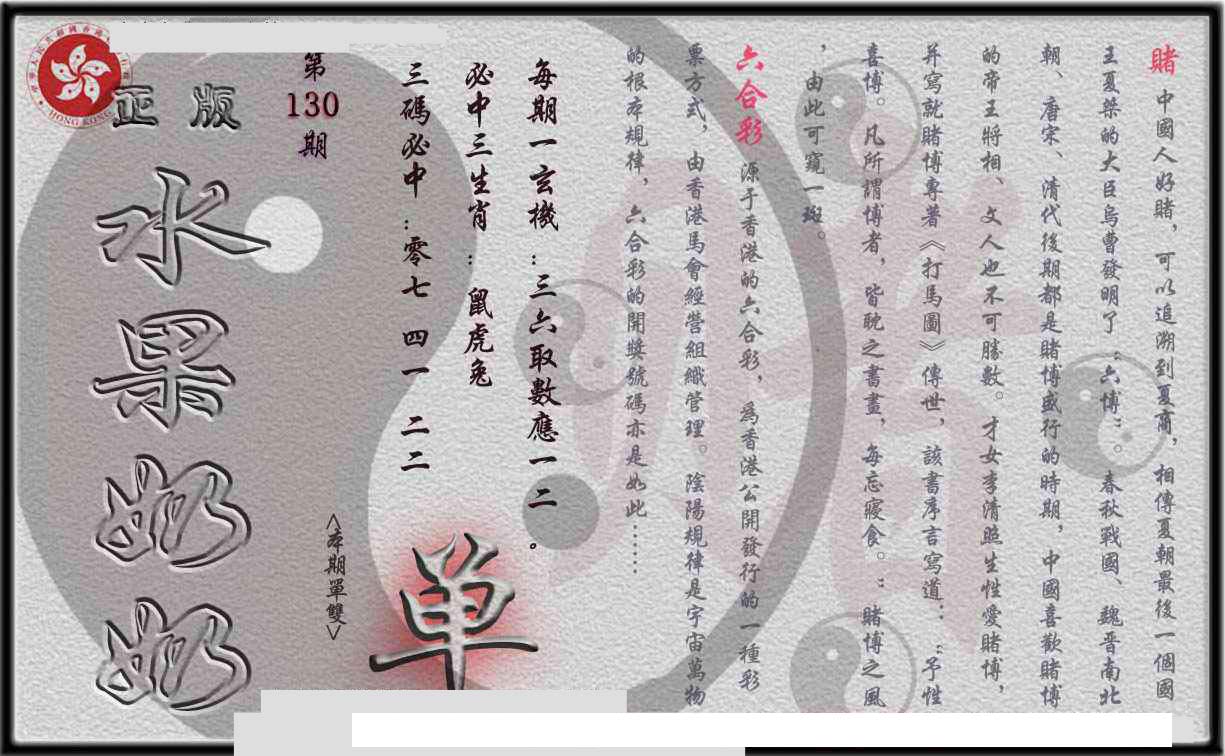 賭 中國人好賭，可以追溯到夏商，相傳夏朝最後一個國
王夏桀的大臣烏曹發明了“六博”。春秋戰國、魏晋南北
朝、唐宋、清代後期都是賭博盛行的時期，中國喜歡賭博
的帝王將相、文人也不可勝數。才女李清照生性愛賭博，
并寫就賭博專著《打馬圖》傳世，該書序言寫道：“予性
喜博。凡所謂博者，皆耽之書畫，每忘寢食。”賭博之風
，由此可窺一斑。
六合彩 源于香港的六合彩，為香港公開發行的一種彩
票方式，由香港馬會經營組織管理。陰陽規律是宇宙萬物
的根本規律，六合彩的開獎號碼亦是如此……
每期一玄機：三六取數應一二。
必中三生肖：鼠虎兔
三碼必中：零七 四一 二二
单
<本期單雙>
第
130
期
正版
水果奶奶
HONG KONG